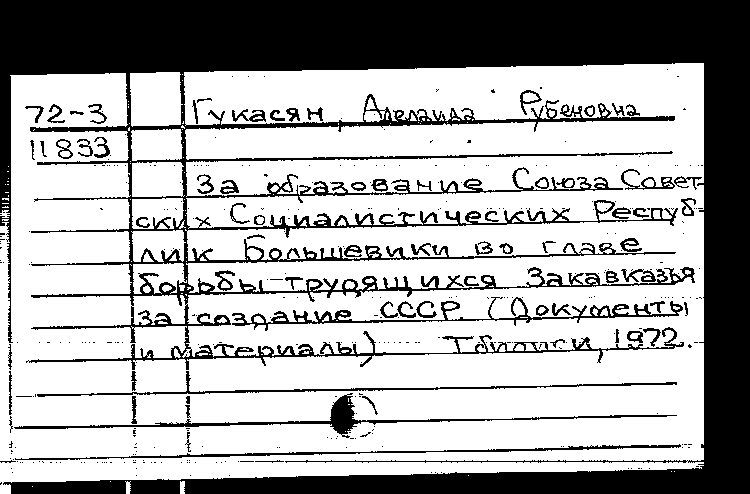 72-3 Гукасян, Аделаида Рубеновна
11833
За образование Союза Совет-
ских Социалистических Респуб-
лик Большевики во главе
борьбы трудящихся Закавказья
за создание СССР. (Документы
и материалы). Тбилиси, 1972.